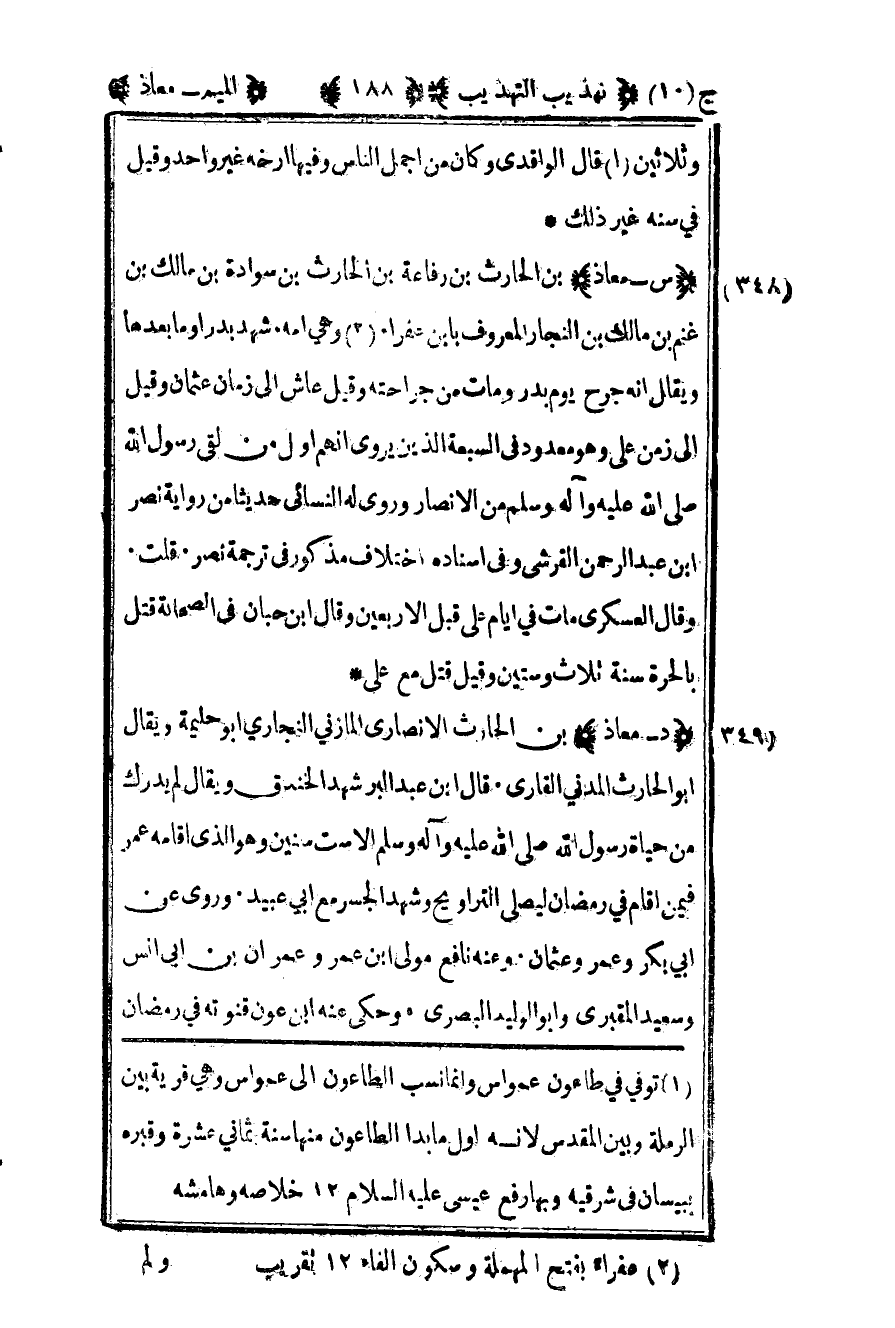 ج (١٠) ﴿ تهذيب التهذيب ﴾ ﴿ ١٨٨ ﴾ ﴿ الميم ـ معاذ ﴾
وثلاثين (١) قال الواقدى وكان من اجمل الناس وفيها ارخه غير واحد وقيل
فى سنه غير ذلك *
(٣٤٨) ﴿ س ـ معاذ ﴾ بن الحارث بن رفاعة بن الحارث بن سوادة بن مالك بن
غنم بن مالك بن النجار المعروف بابن عفراء (٢) وهي امه ٠ شهد بدرا وما بعدها
ويقال انه جرح يوم بدر ومات من جراحته وقيل عاش الى زمان عثمان وقيل
الى زمن على وهو معدود فى السبعة الذين يروى انهم اول من لقى رسول الله
صلى الله عليه وآله وسلم من الانصار وروى له النسائى حديثا من رواية نصر
ابن عبد الرحمن القرشى وفى اسناده اختلاف مذكور فى ترجمة نصر ٠ قلت ٠
وقال العسكرى مات في ايام على قبل الاربعين وقال ابن حبان فى الصحابة قتل
بالحرة سنة ثلاث وستين وقيل قتل مع على *
(٣٤٩) ﴿ د ـ معاذ ﴾ بن الحارث الانصارى المازني النجاري ابو حليمة ويقال
ابو الحارث المدني القارى ٠ قال ابن عبد البر شهد الخندق ويقال لم يدرك
من حياة رسول الله صلى الله عليه وآله وسلم الا ست سنين وهو الذى اقامه عمر
فيمن اقام في رمضان ليصلى التراويح وشهد الجسر مع ابي عبيد ٠ وروى عن
ابي بكر وعمر وعثمان ٠ وعنه نافع مولى ابن عمر و عمر ان بن ابى انس
وسعيد المقبرى وابو الوليد البصرى ٠ وحكى عنه ابن عون قنوته في رمضان
(١) توفي في طاعون عمواس وانما نسب الطاعون الى عمواس وهي قرية بين
الرملة وبين المقدس لانه اول ما بدا الطاعون منها سنة ثماني عشرة وقبره
ببيسان فى شرقيه وبها رفع عيسى عليه السلام ١٢ خلاصه وهامشه
(٢) عفراء بفتح المهملة وسكون الفاء ١٢ تقريب ولم